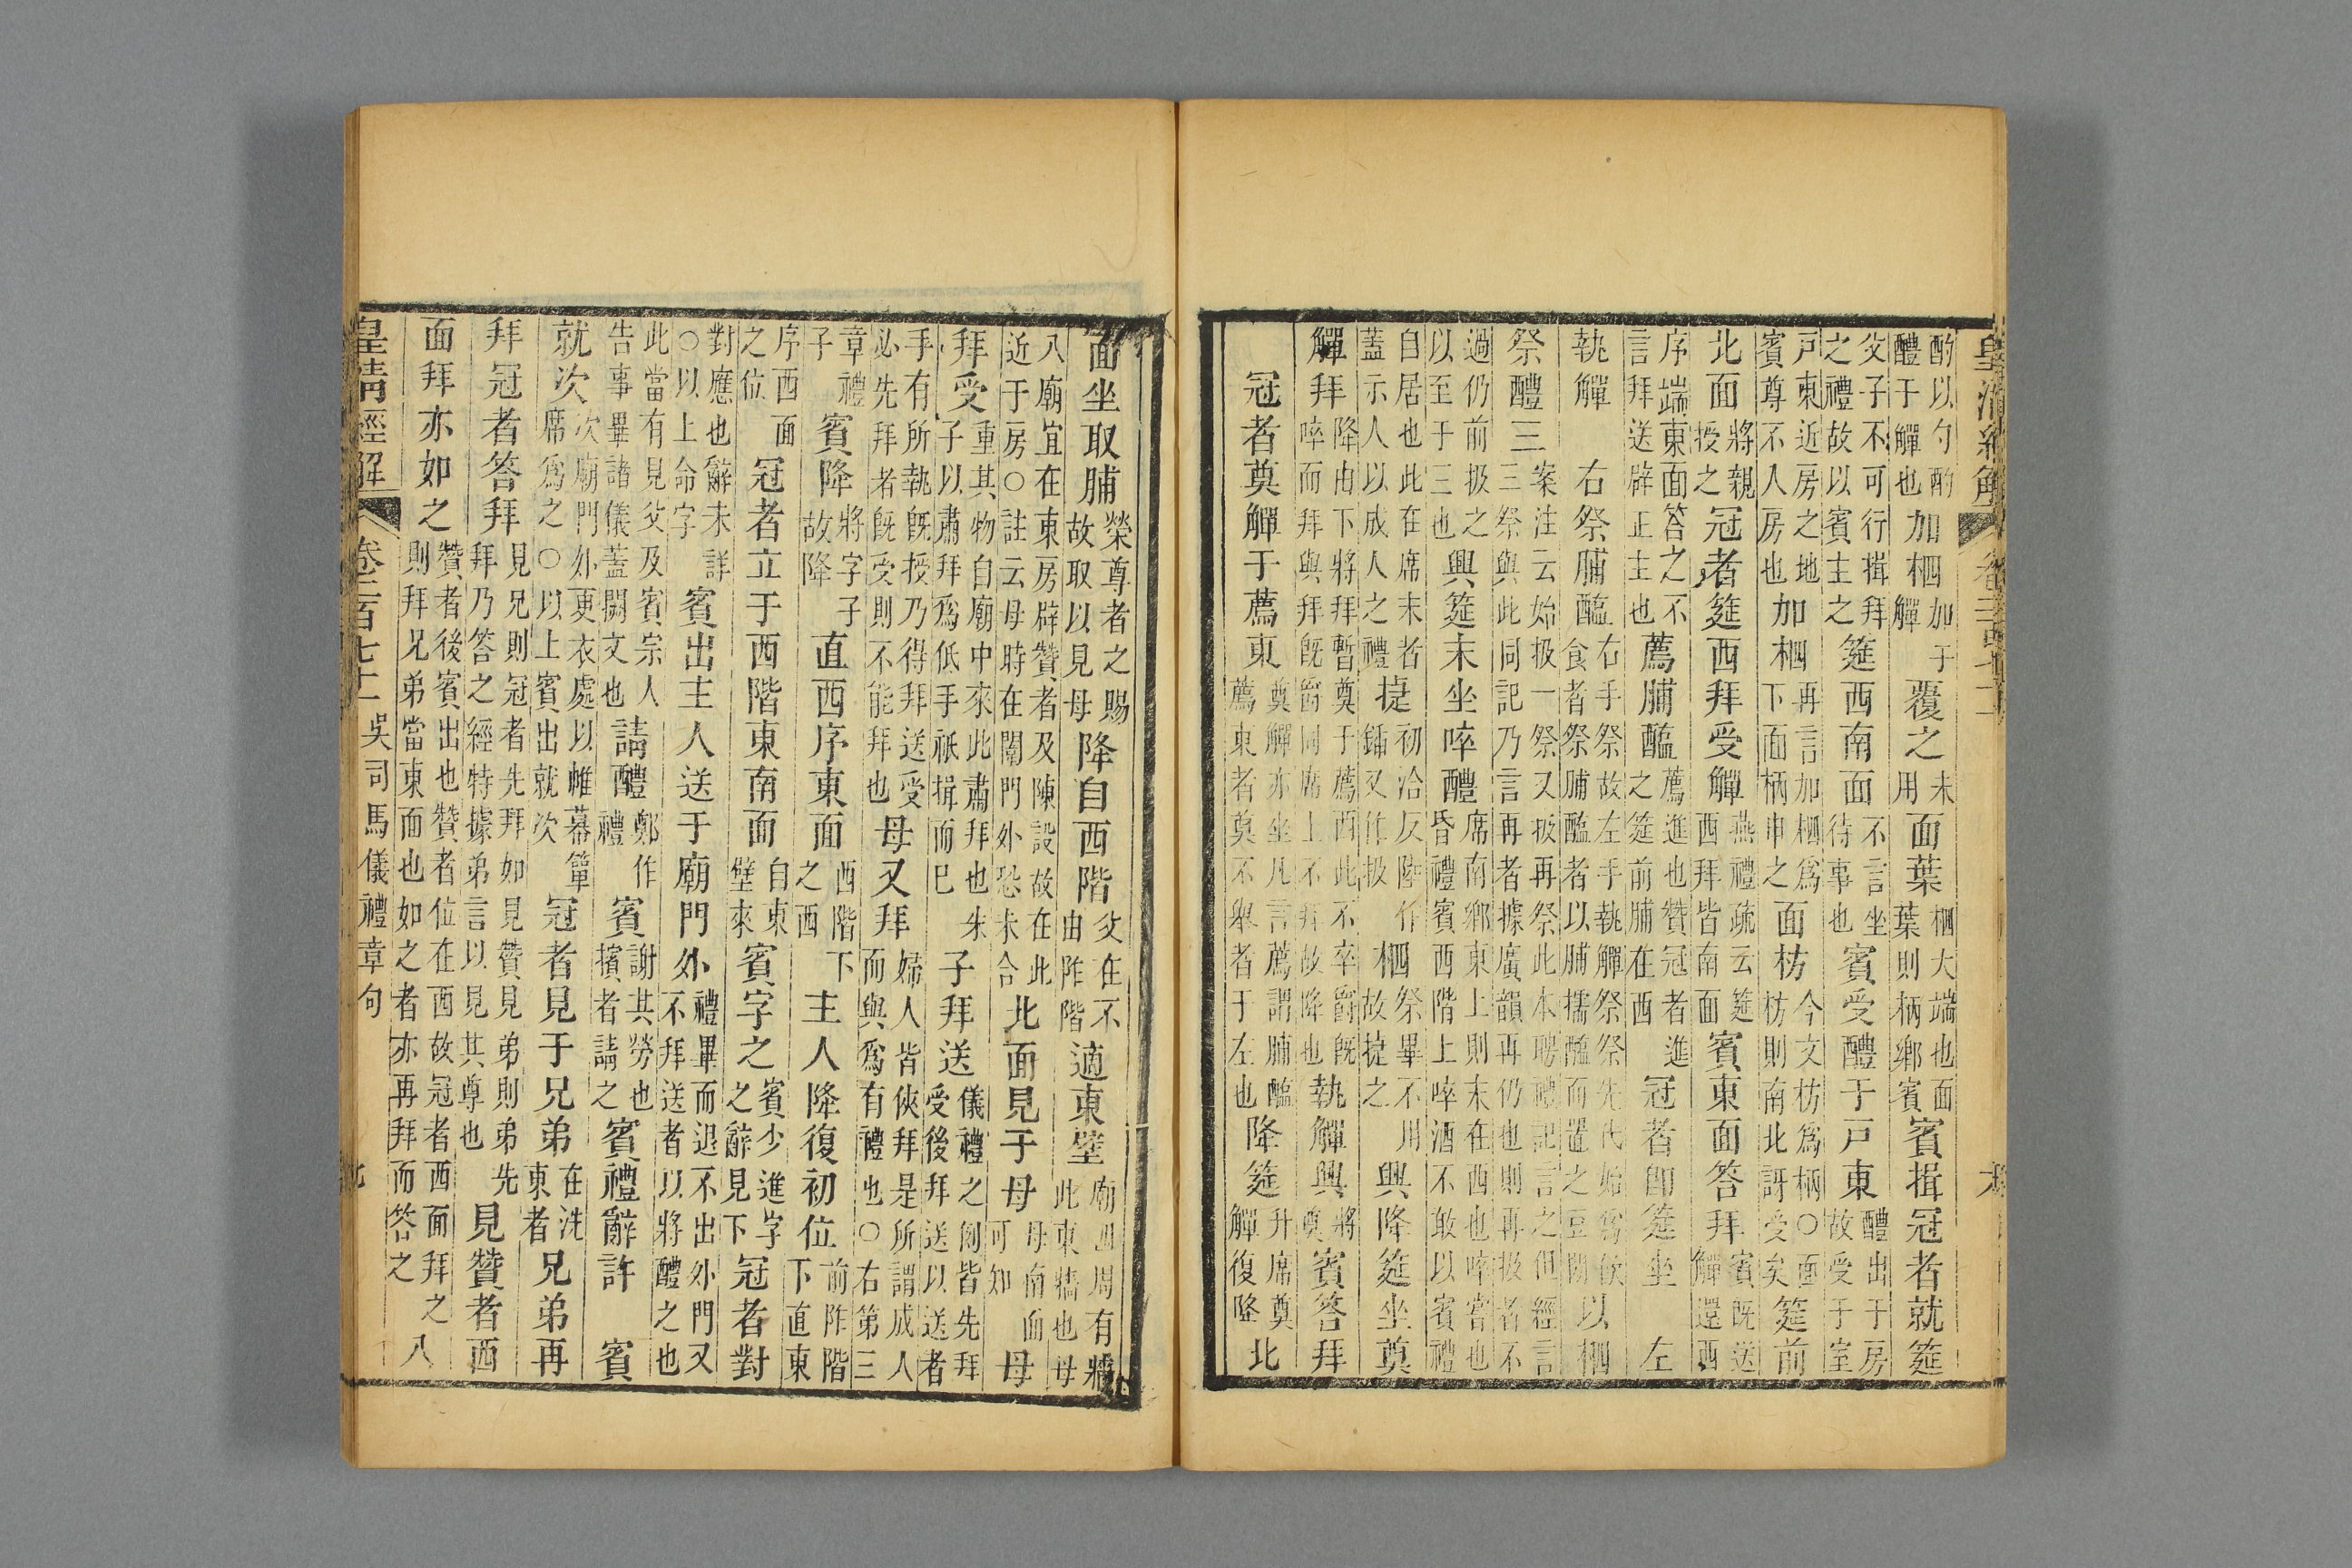 皇清經解
酌以勺酌醴于觶也加柶加于觶覆之未用面葉柶大端也面葉則柄鄉賓賓揖冠者就筵
父子不可行揖拜之禮故以賓主之筵西南面不言坐待事也賓受醴于戶東醴出于房故受于室
戶東近房之地賓尊不入房也加柶再言加柶爲下面柄申之面枋今文枋爲柄○面枋則南北訝受矣筵前
北面將親授之冠者筵西拜受觶燕禮疏云筵西拜皆南面賓東面答拜賓既送觶還西
序端東面答之不言拜送辟正主也薦脯醢薦進也贊冠者進之筵前脯在西冠者卽筵坐左
執觶右祭脯醢右手祭故左手執觶祭祭先代始爲飲食者祭脯醢者以脯擩醢而置之豆閒以柶
祭醴三案注云始扱一祭又扱再祭此本聘禮記言之但經言三祭與此同記乃言再者據廣韻再仍也則再扱者不
過仍前扱之以至于三也興筵末坐啐醴席南鄉東上則末在西也啐嘗也昏禮賓西階上啐酒不敢以賓禮
自居也此在席末者蓋示人以成人之禮揵初洽反陸作鍤又作扱柶祭畢不用故揵之興降筵坐奠
觶拜降由下將拜暫奠于薦西此不卒爵既啐而拜與拜既爵同席上不拜故降也執觶興將奠賓答拜
冠者奠觶于薦東奠觶亦坐凡言薦謂脯醢薦東者奠不舉者于左也降筵升席奠觶復降北
面坐取脯榮尊者之賜故取以見母降自西階父在不由阼階適東壁廟四周有牆此東牆也母
八廟宜在東房辟贊者及陳設故在此近于房○註云母時在闈門外恐未合北面見于母母南面可知母
拜受重其物自廟中來此肅拜也朱子以肅拜爲低手祇揖而已子拜送儀禮之例皆先拜受後拜送以送者
手有所執既授乃得拜送受必先拜者既受則不能拜也母又拜婦人皆俠拜是所謂成人而與爲有禮也○右第三
章禮子賓降將字子故降直西序東面西階下之西主人降復初位前阼階下直東
序西面之位冠者立于西階東南面自東壁來賓字之賓少進字之辭見下冠者對
對應也辭未詳○以上命字賓出主人送于廟門外禮畢而退不出外門又不拜送者以將醴之也
此當有見父及賓宗人告事畢諸儀蓋闕文也請醴鄭作禮賓謝其勞也擯者請之賓禮辭許賓
就次次廟門外更衣處以帷幕簟席爲之○以上賓出就次冠者見于兄弟在洗東者兄弟再
拜冠者答拜見兄則冠者先拜如見贊見弟則弟先拜乃答之經特據弟言以見其尊也見贊者西
面拜亦如之贊者後賓出也贊者位在西故冠者西面拜之則拜兄弟當東面也如之者亦再拜而答之入
皇清經解 卷二百七十一 吳司馬儀禮章句